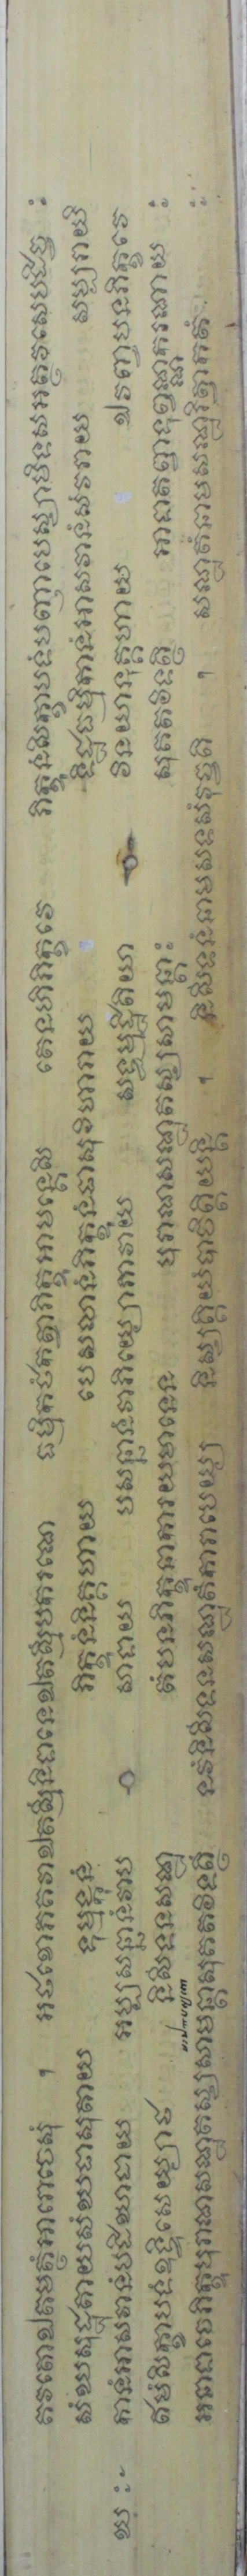 តវតោឯតមត្ថំអារោចេសុំ ។ អថខោភគវាឯតស្មិំនិទានេឯតស្មិំបករណេ ធម្មិកថំកត្វាភិក្ខូអាមន្តេសិ តេនហិភិក្ខវេ ភិក្ខូនំសិក្ខាបទំបញាបេស្សាមិទសអត្ថវសេបដិច្ច ៖
សំឃសុដ្ឋុតាយសំឃផាសុតាយ ទុម្មង្កូនំ ភិក្ខូនំនិគ្គហាយ បេសលានំភិក្ខូនំផាសុវិហារាយ ទិដ្ឋធម្មិកានំអាសវានំសំវរាយ សម្បរាយិ
ឃ ៖ កានំអាសវានំបដិឃាតាយ អប្បសន្នានំវាប សាទាយ បសន្នានំវាភិយ្យោភាវាយ សទ្ធម្មដ្ឋិតិយា វិនយានុគ្គហាយ ឯវញ្ចបនភិក្ខវេ
ឥមំសិក្ខាបទំឧទ្ទិសេយ្យាថ និសីទនសណ្ឋ តំបនភិក្ខុនាការយមានេន បុរាណសណ្ឋតស្សសាមន្តា៖ សុគតវិទត្ថិ អាទាតព្វាទុព្វណ្ណករណាយ ៖
អនាទាចេភិក្ខុបុរាណសណ្ឋតស្សសាមន្តាសុគតវិទត្ថិំ នវំនិសីទនសណ្ឋតំការាបេយ្យ និស្សគ្គិយំបាចិត្តិយន្តិ ។ និសីទនំនាមសទសំវុច្ចតិ ។ សណ្ឋតំនាមសណ្ឋរិត្វាកតំ ៖